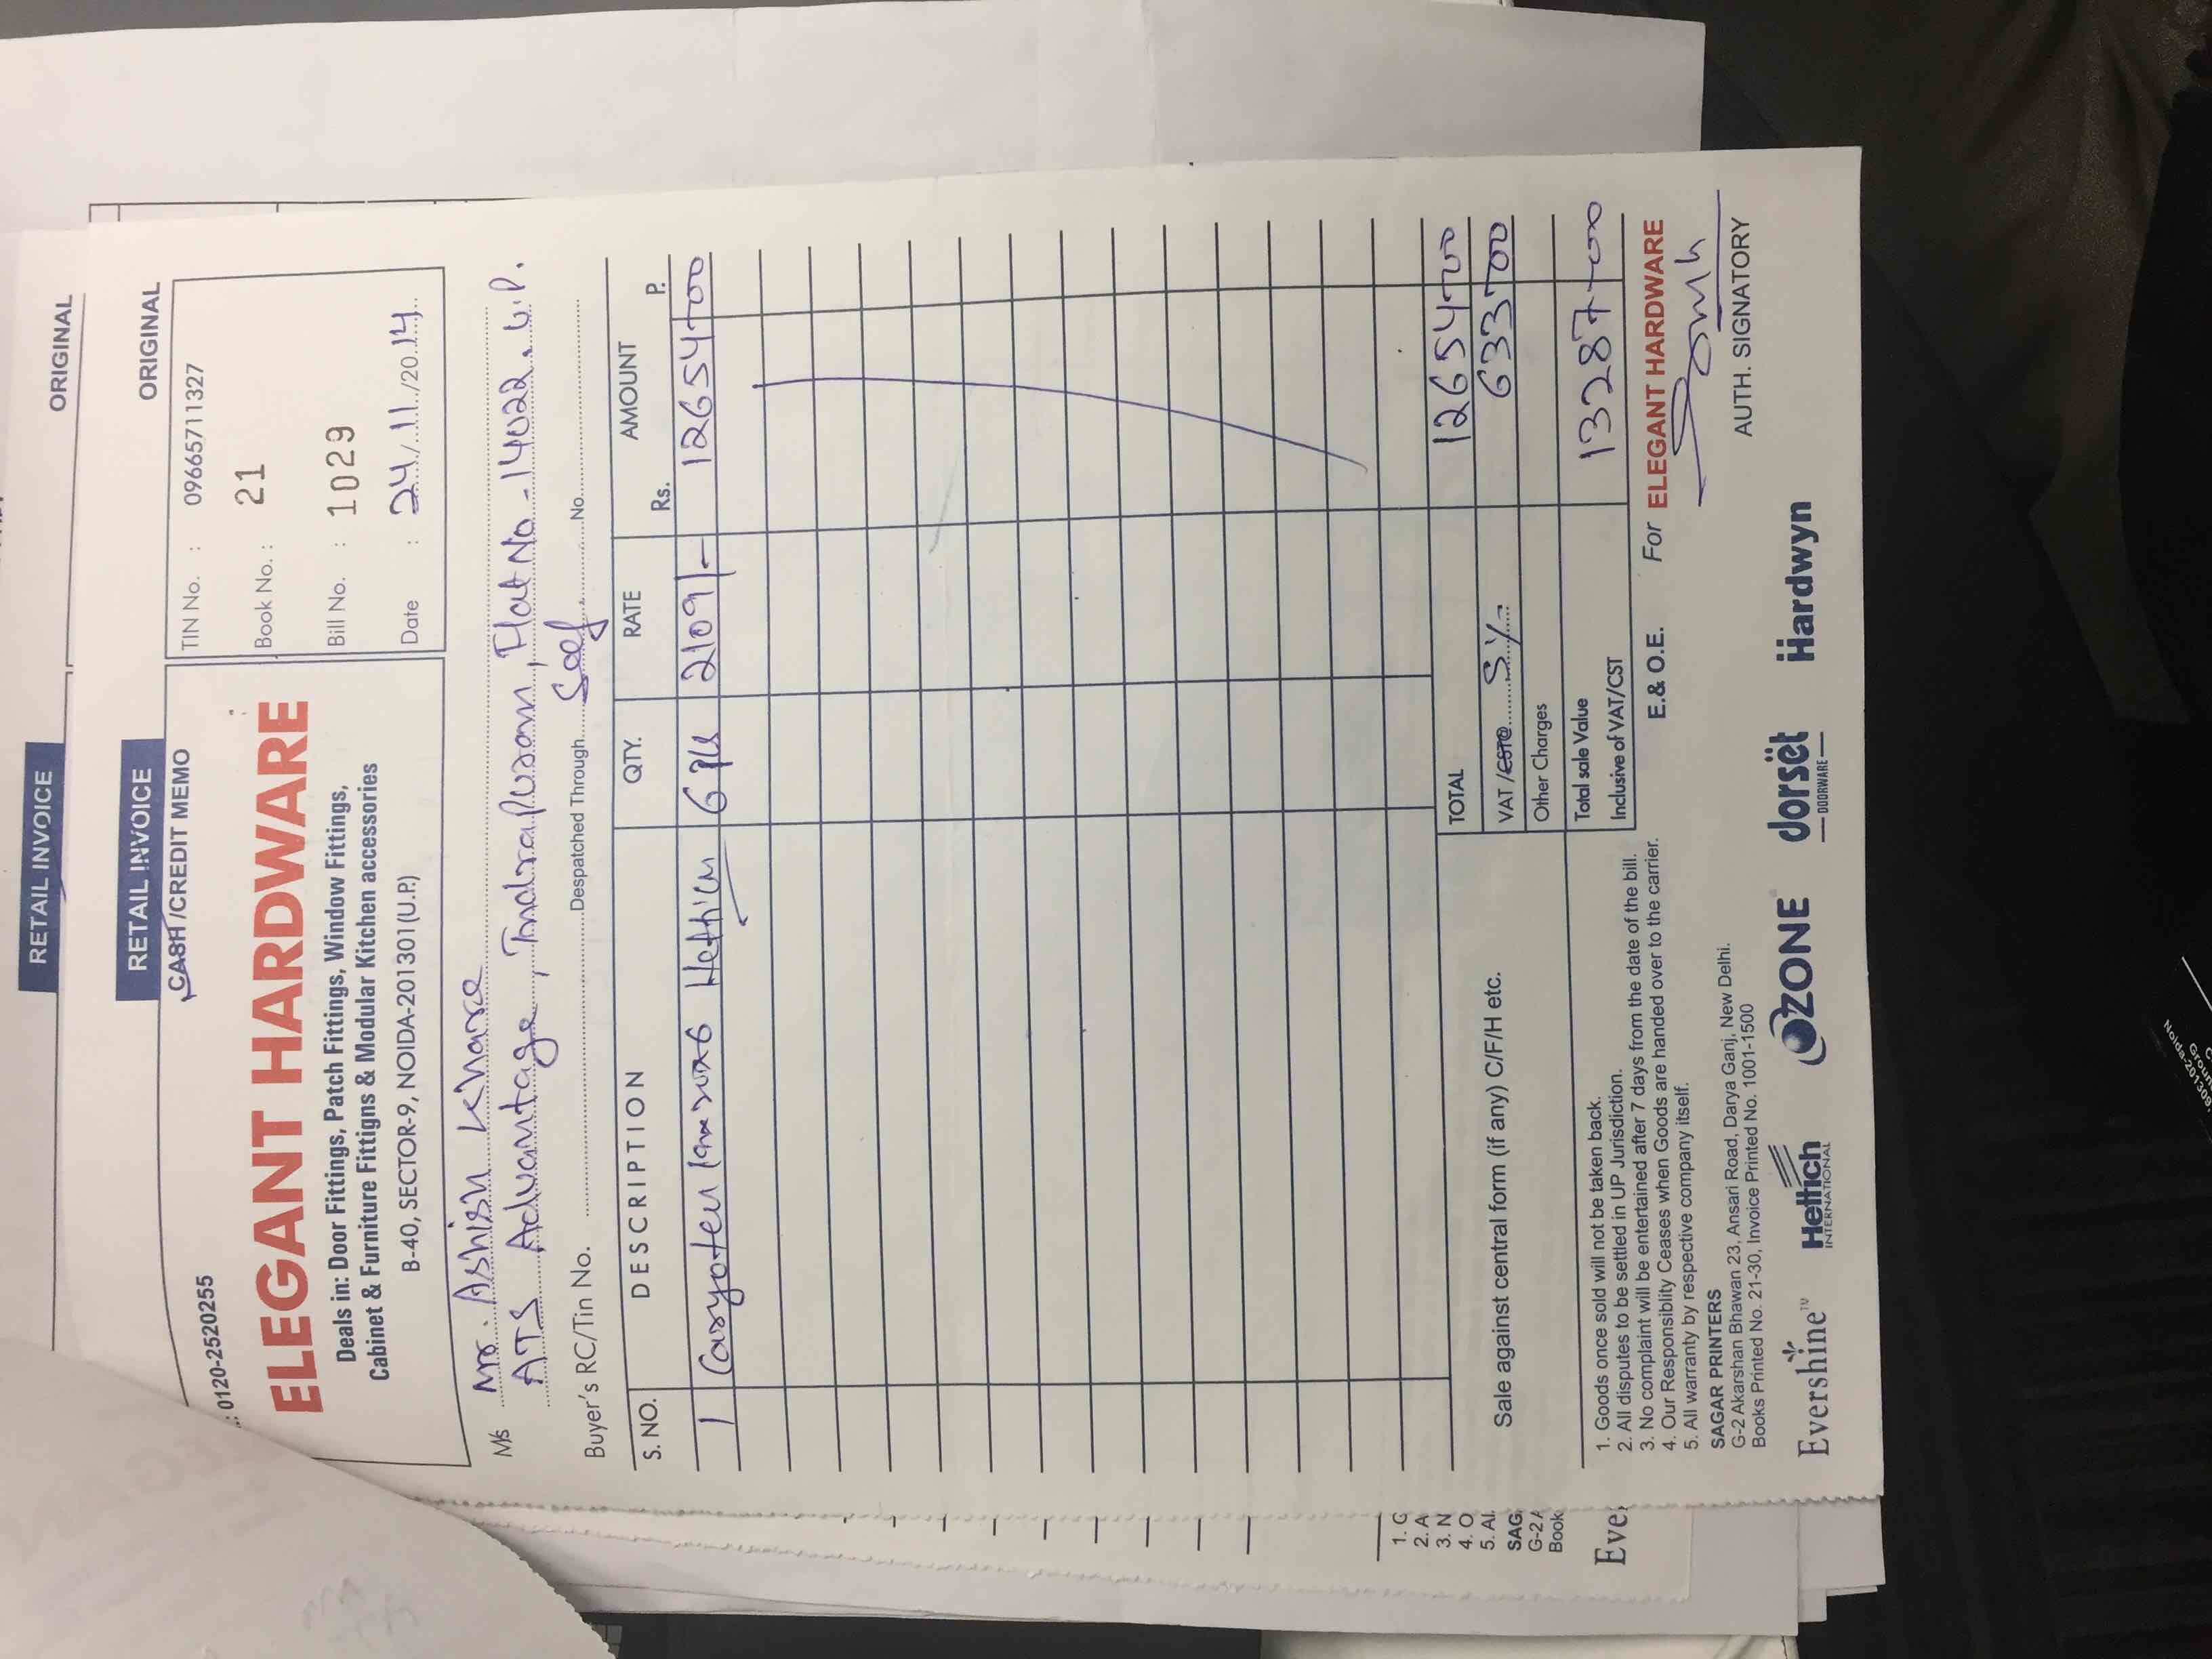 RETAIL INVOICE
ORIGINAL
RETAIL INVOICE
ORIGINAL
CASH /CREDIT MEMO
.: 0120-2520255
TIN No. : 09665711327
ELEGANT HARDWARE
Book No. : 21
Deals in: Door Fittings, Patch Fittings, Window Fittings,
Cabinet & Furniture Fittigns & Modular Kitchen accessories
Bill No. : 1029
B-40, SECTOR-9, NOIDA-201301(U.P.)
Date : 24/11/2014
M/s Mr. Ashish Khare
ATS Advantage, Indrapuram, Flat No - 14022. U.P.
Buyer's RC/Tin No. Despatched Through Self No.
S. NO. DESCRIPTION QTY. RATE AMOUNT
Rs. P.
1 Hettich 6 pcs 2109/- 12654=00
TOTAL 12654=00
Sale against central form (if any) C/F/H etc.
VAT /CST@ 5% 633=00
Other Charges
Total sale Value
Inclusive of VAT/CST 13287=00
1. Goods once sold will not be taken back.
2. All disputes to be settled in UP Jurisdiction.
3. No complaint will be entertained after 7 days from the date of the bill.
4. Our Responsiblity Ceases when Goods are handed over to the carrier.
5. All warranty by respective company itself.
E.& O.E. For ELEGANT HARDWARE
SAGAR PRINTERS
G-2 Akarshan Bhawan 23, Ansari Road, Darya Ganj, New Delhi.
Books Printed No. 21-30, Invoice Printed No. 1001-1500
AUTH. SIGNATORY
Evershine™ Hettich INTERNATIONAL OZONE dorsët DOORWARE Hardwyn
1. G
2. A
3. N
4. O
5. Al
SAG
G-2 A
Book
Eve
Noida-201309